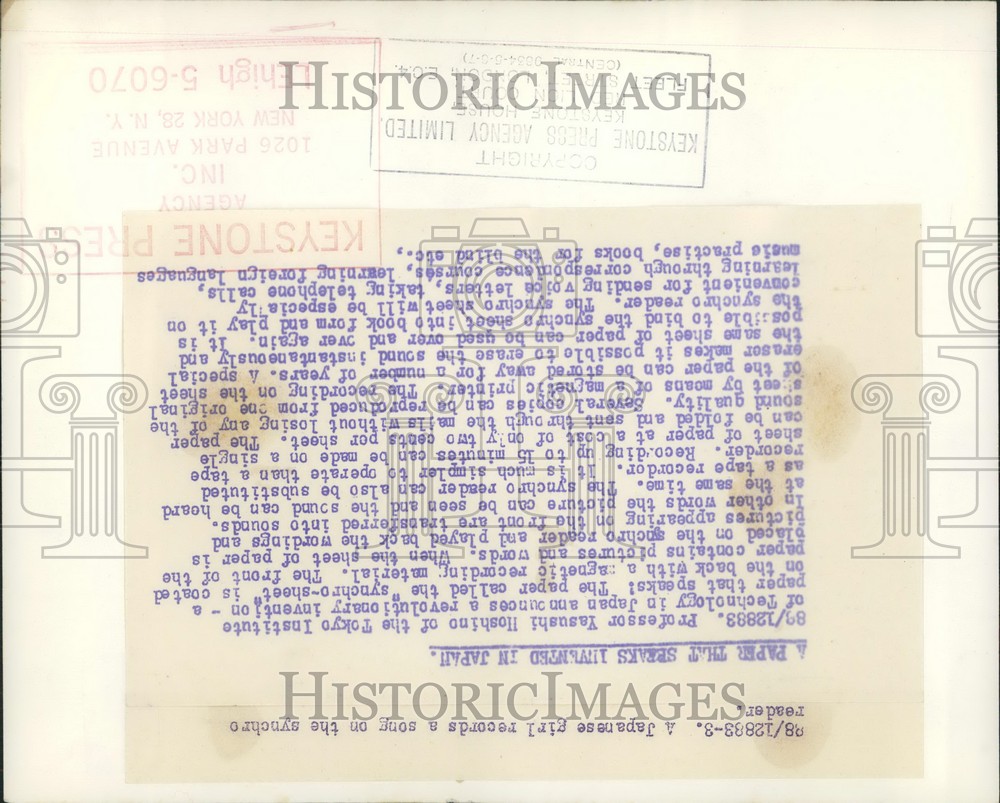 88/12883-3. A Japanese girl records a song on the synchro
reader.
A PAPER THAT SPEAKS INVENTED IN JAPAN.
88/12883. Professor Yasushi Hoshino of the Tokyo Institute
of Technology in Japan announces a revolutionary invention - a
paper that speaks! The paper called the "synchro-sheet" is coated
on the back with a magnetic recording material. The front of the
paper contains pictures and words. When the sheet of paper is
placed on the synchro reader and played back the wordings and
pictures appearing on the front are transferred into sounds.
In other words the picture can be seen and the sound can be heard
at the same time. The synchro reader can also be substituted
as a tape recorder. It is much simpler to operate than a tape
recorder. Recording up to 15 minutes can be made on a single
sheet of paper at a cost of only two cents per sheet. The paper
can be folded and sent through the mails without losing any of the
sound quality. Several copies can be reproduced from one original
sheet by means of a magnetic printer. The recording on the sheet
of the paper can be stored away for a number of years. A special
eraser makes it possible to erase the sound instantaneously and
the same sheet of paper can be used over and over again. It is
possible to bind the synchro sheet into book form and play it on
the synchro reader. The synchro sheet will be especially
convenient for sending voice letters, taking telephone calls,
learning through correspondence courses, learning foreign languages
music practise, books for the blind etc.,
KEYSTONE PRESS
AGENCY
INC.
1026 PARK AVENUE
NEW YORK 28, N. Y.
LEhigh 5-6070
COPYRIGHT
KEYSTONE PRESS AGENCY LIMITED.
KEYSTONE HOUSE
RED LION COURT
FLEET STREET, LONDON, E.C.4.
(CENTRAL 3334-5-6-7)
HISTORICIMAGES
HISTORICIMAGES